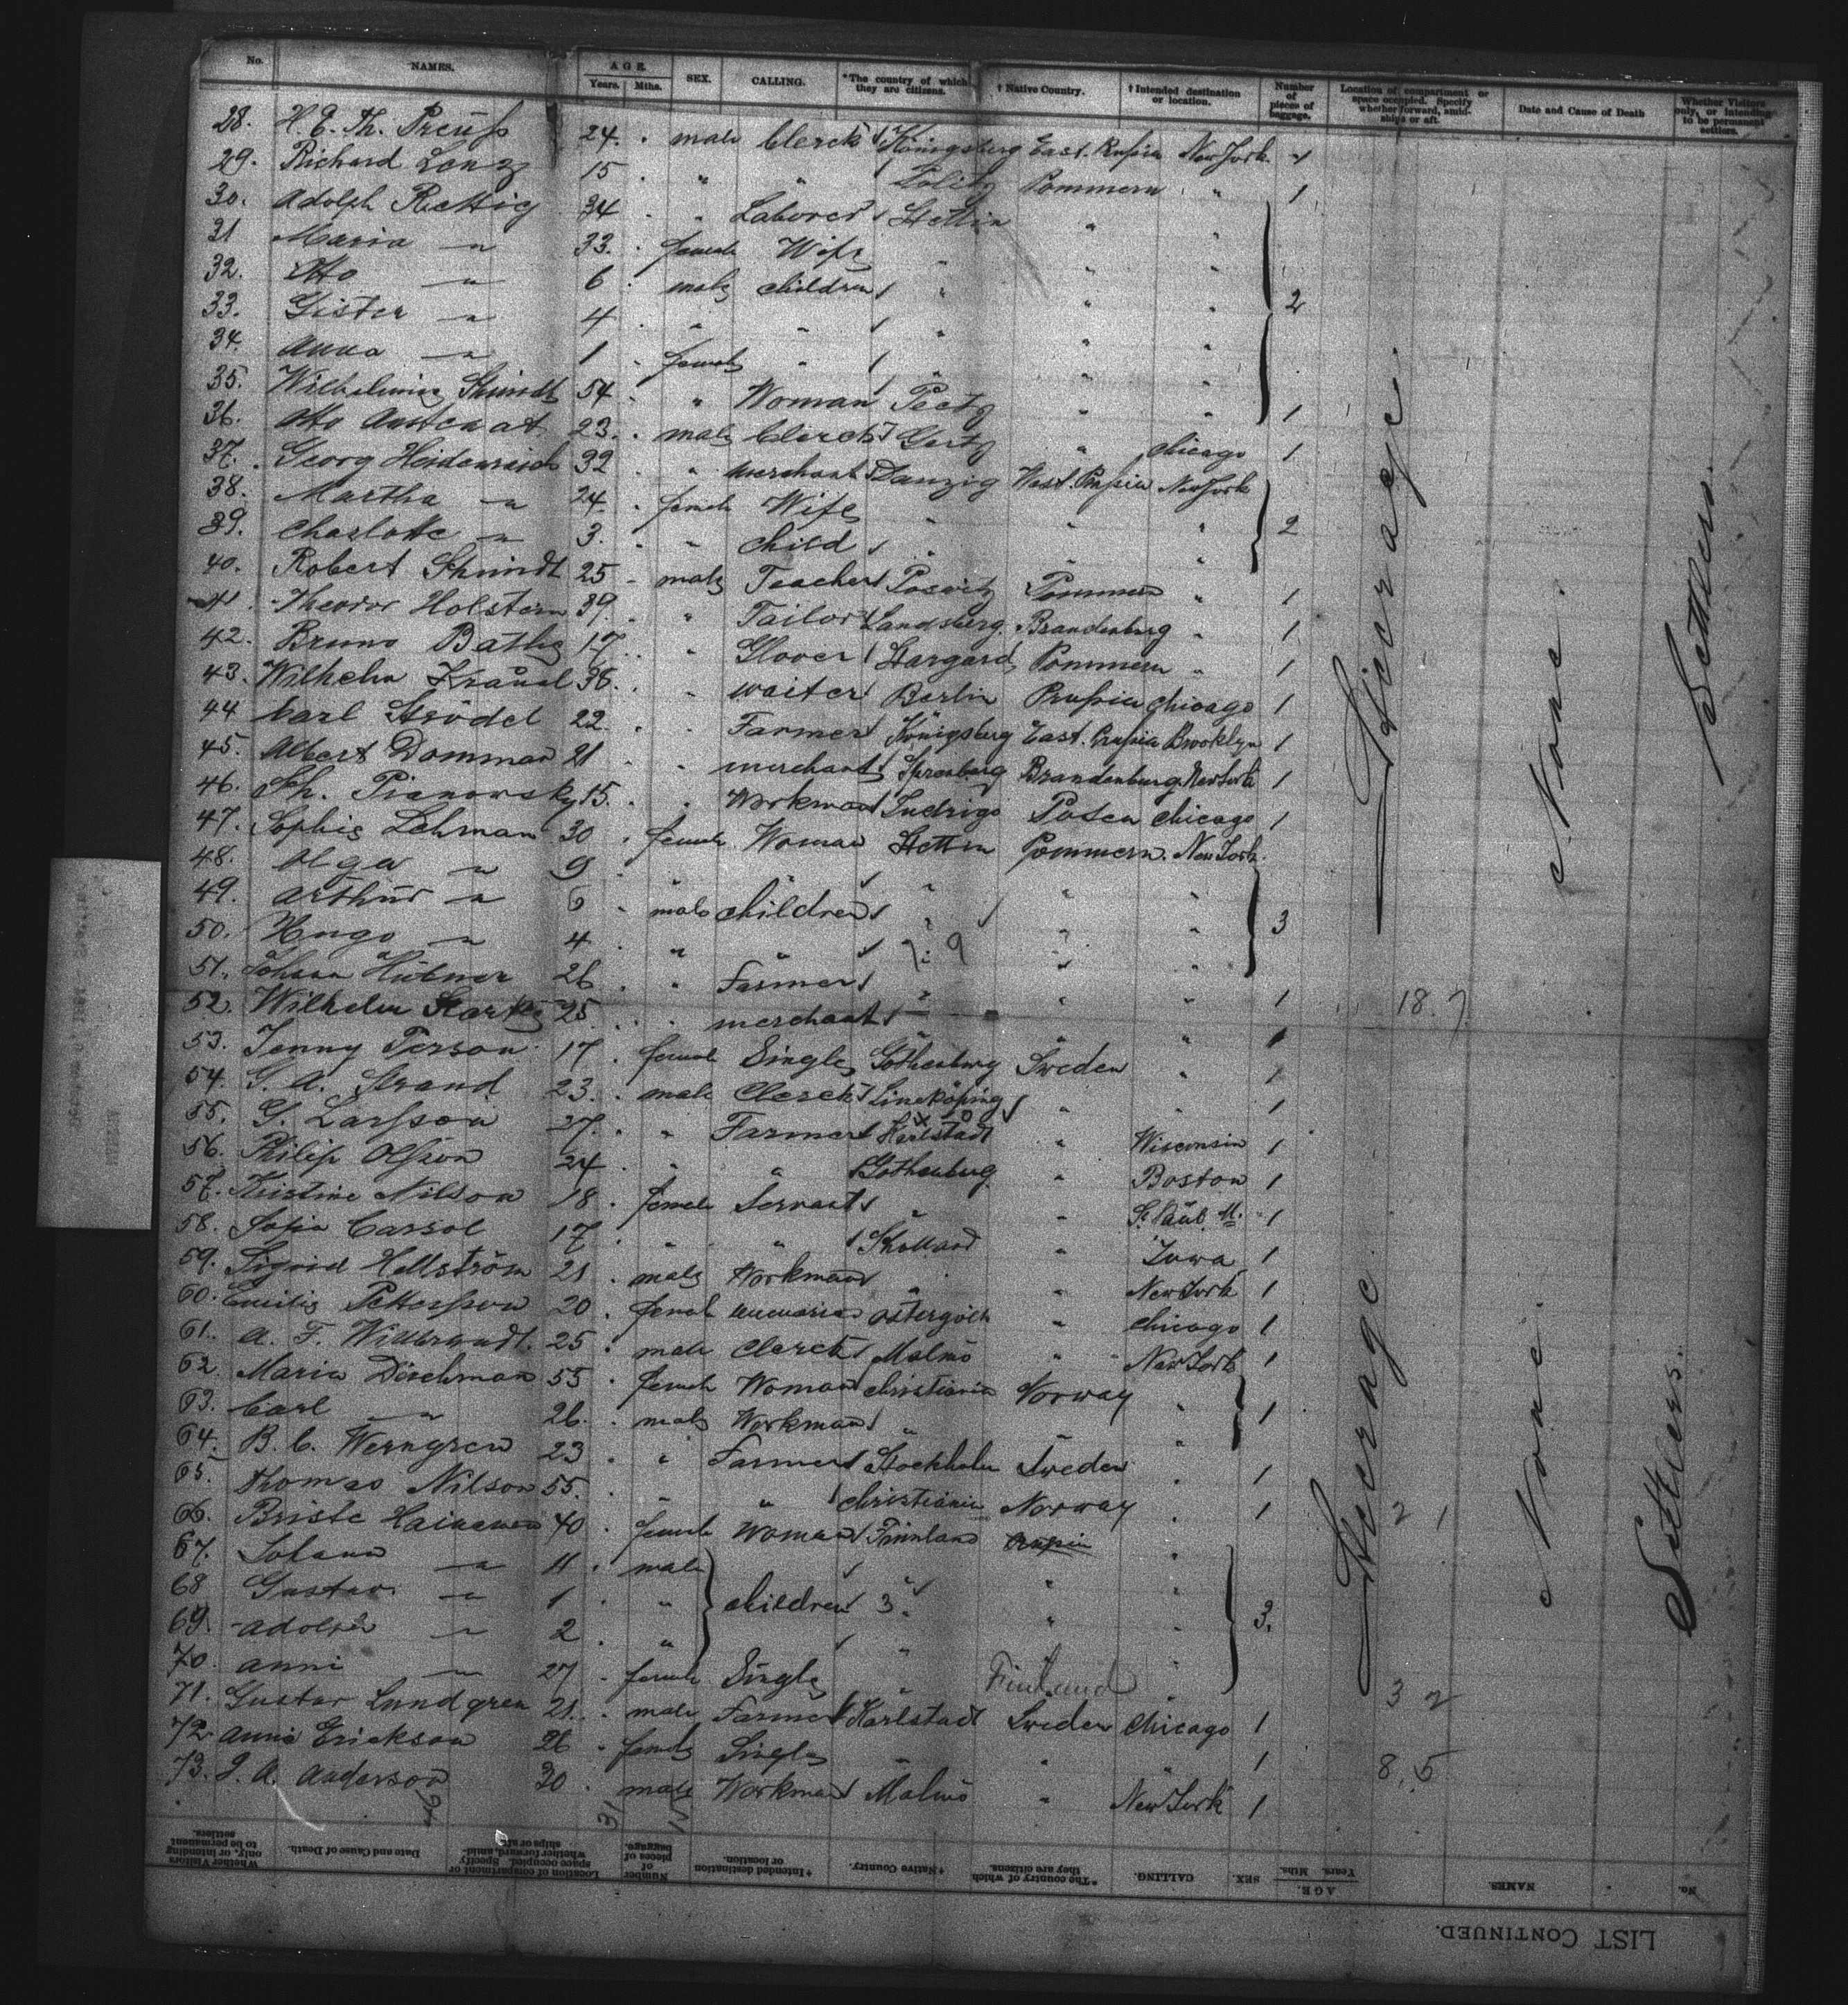 No. NAMES. AGE. Years. Mths. SEX. CALLING. *The country of which they are citizens. † Native Country. † Intended destination or location. Number of pieces of baggage. Location of compartment or space occupied. Specify whether forward, amidships or aft. Date and Cause of Death Whether Visitors only, or intending to be permanent settlers.
28. H. E. Th. Preuß 24. male Clerck Königsberg East. Prußia New York
29. Richard Lenz 15 " " Politz Pommern " 1
30. Adolph Rettig 34 " Laborer Stettin " "
31 Maria " 33. female Wife " " "
32. Otto " 6 male children " " " 2
33. Gister " 4 " " " " "
34. Anna " 1 female " " " "
35. Wilhelmine Shmidt 54 " Woman " " 1
36. Otto 23. male Clerck " Chicago 1
37. Georg Heidenreich 32 " merchant Danzig West. Prußia New York
38. Martha " 24. female Wife " " " 2
39. Charlotte " 3. " child " " "
40. Robert Shmidt 25 male Teacher Pommern " 1
41. Theodor Holstein 39. " Tailor Landsberg Brandenburg " 1
42. Bruno Bathe 17. " Glover Stargard Pommern " 1
43. Wilhelm Kraüel 36. " waiter Berlin Prußia Chicago 1
44 Carl Strödel 22. " Farmer Königsberg East. Prußia Brooklyn 1
45. Albert Domman 21 " merchant Brandenburg New York 1
46. Th. Pianowsky 15. " Workman Posen Chicago 1
47. Sophie Lehman 30 female Woman Stettin Pommern. New York.
48. Olga " 9 " " " " "
49. Arthur " 6 male children " " " 3
50. Hugo " 4 " " " " "
51. Hübner 26 " Farmer " " " 1
52. Wilhelm 25 " merchant " " " 1
53. Jenny Person 17 female Single Gothenburg Sweden " 1
54. G. A. Strand 23. male Clerck Lineköping " " 1
55. G. Larßson 27. " Farmer Karlstadt " Wisconsin 1
56. Philip Olßson 24 " " Gothenburg " Boston 1
57. Kristine Nilson 18 female Servant " " St. Paul. M. 1
58. Sofia Carsol 17 " " " Iowa 1
59. Sigrid Hellström 21 male Workman " " New York 1
60. Emilie Petterßson 20 female " Chicago 1
61. A. F. 25 male Clerck Malmö " New York 1
62. Maria Dischman 55 female Woman Christiania Norway " 1
63. Carl " 26. male Workman " " "
64. B. C. Werngren 23 " Farmer Stockholm Sweden " 1
65. Thomas Nilson 55. " " Christiania Norway " 1
66. Briste 40 female Woman Finnland "
67. Johann " 11 male " " "
68 Gustav " 1 " children " " " 3.
69. Adolph " 2 " " "
70. Anni " 27 female Single " Finland "
71. Gustav Lundgren 21. male Farmer Karlstadt Sweden Chicago 1
72 Anna Erickson 26 female Single " " " 1
73. J. A. Anderson 30 male Workman Malmö " New York 1
Steerage.
None.
Settlers.
18. 7
Steerage
None.
Settlers.
2 1
3 2
8, 5
46
31
15
LIST CONTINUED.
No. NAMES. AGE. Years. Mths. SEX. CALLING. *The country of which they are citizens. †Native Country. †Intended destination or location. Number of pieces of baggage. Location of compartment or space occupied. Specify whether forward, amidships or aft. Date and Cause of Death. Whether Visitors only, or intending to be permanent settlers.